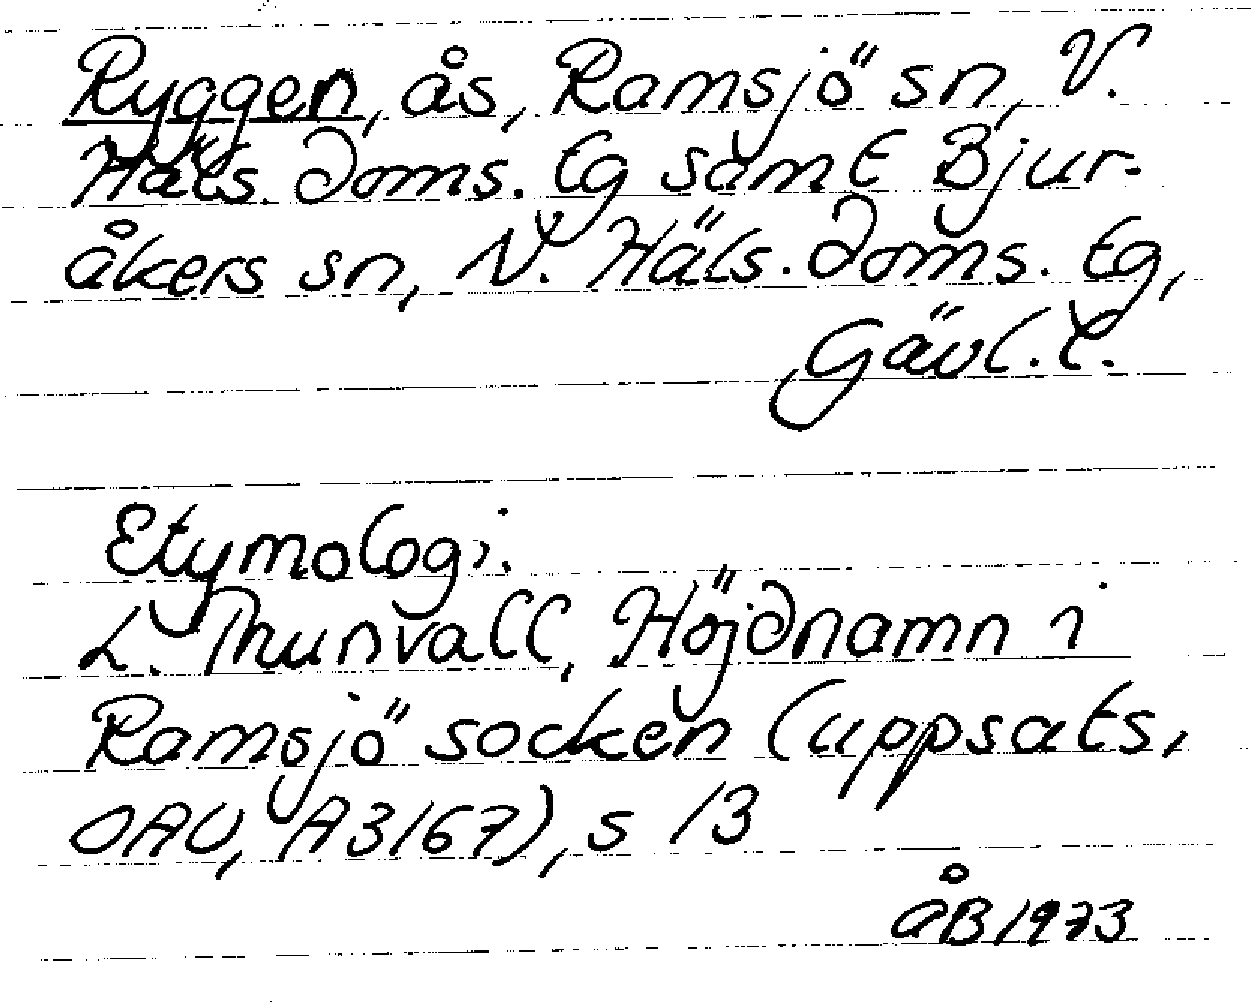 Ryggen, ås, Ramsjö sn, V.
Häls. Doms. tg samt Bjur-
åkers sn, N. Häls. Doms. tg,
Gävl. l.
Etymologi.
L. Thunvall, Höjdnamn i
Ramsjö socken (uppsats,
OAU, A3167), s 13
ÅB 1973